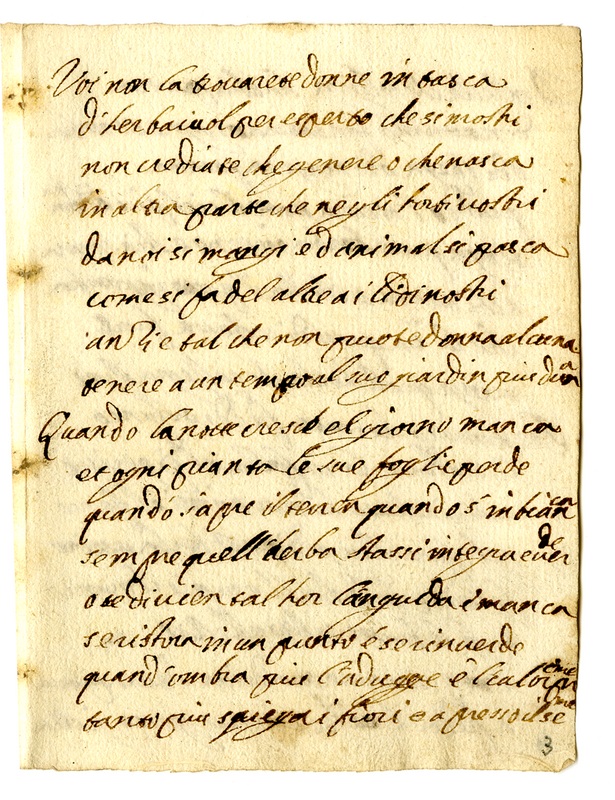 Voi non la trovarete donne in tasca
d'herbaivol per esperto che si mostri
non crediate che genere o che nasca
in altra parte che negli horti vostri
da noi si mangi e d'animal si pasca
come si fa del altre a i lidi nostri
anzi e tal che non puote donna alcuna
tenere a un tempo al suo giardin piu d'una
Quando la notte cresce el giorno manca
et ogni pianta le sue foglie perde
quando s'apre il terren quando s'inbianca
sempre quell'herba stassi integra e verde
o se divien tal hor languida e manca
se ristora in un punto e se rinverde
quand'ombra piu l'adugge e
tanto piu spiega i fiori e apresso il seme
3